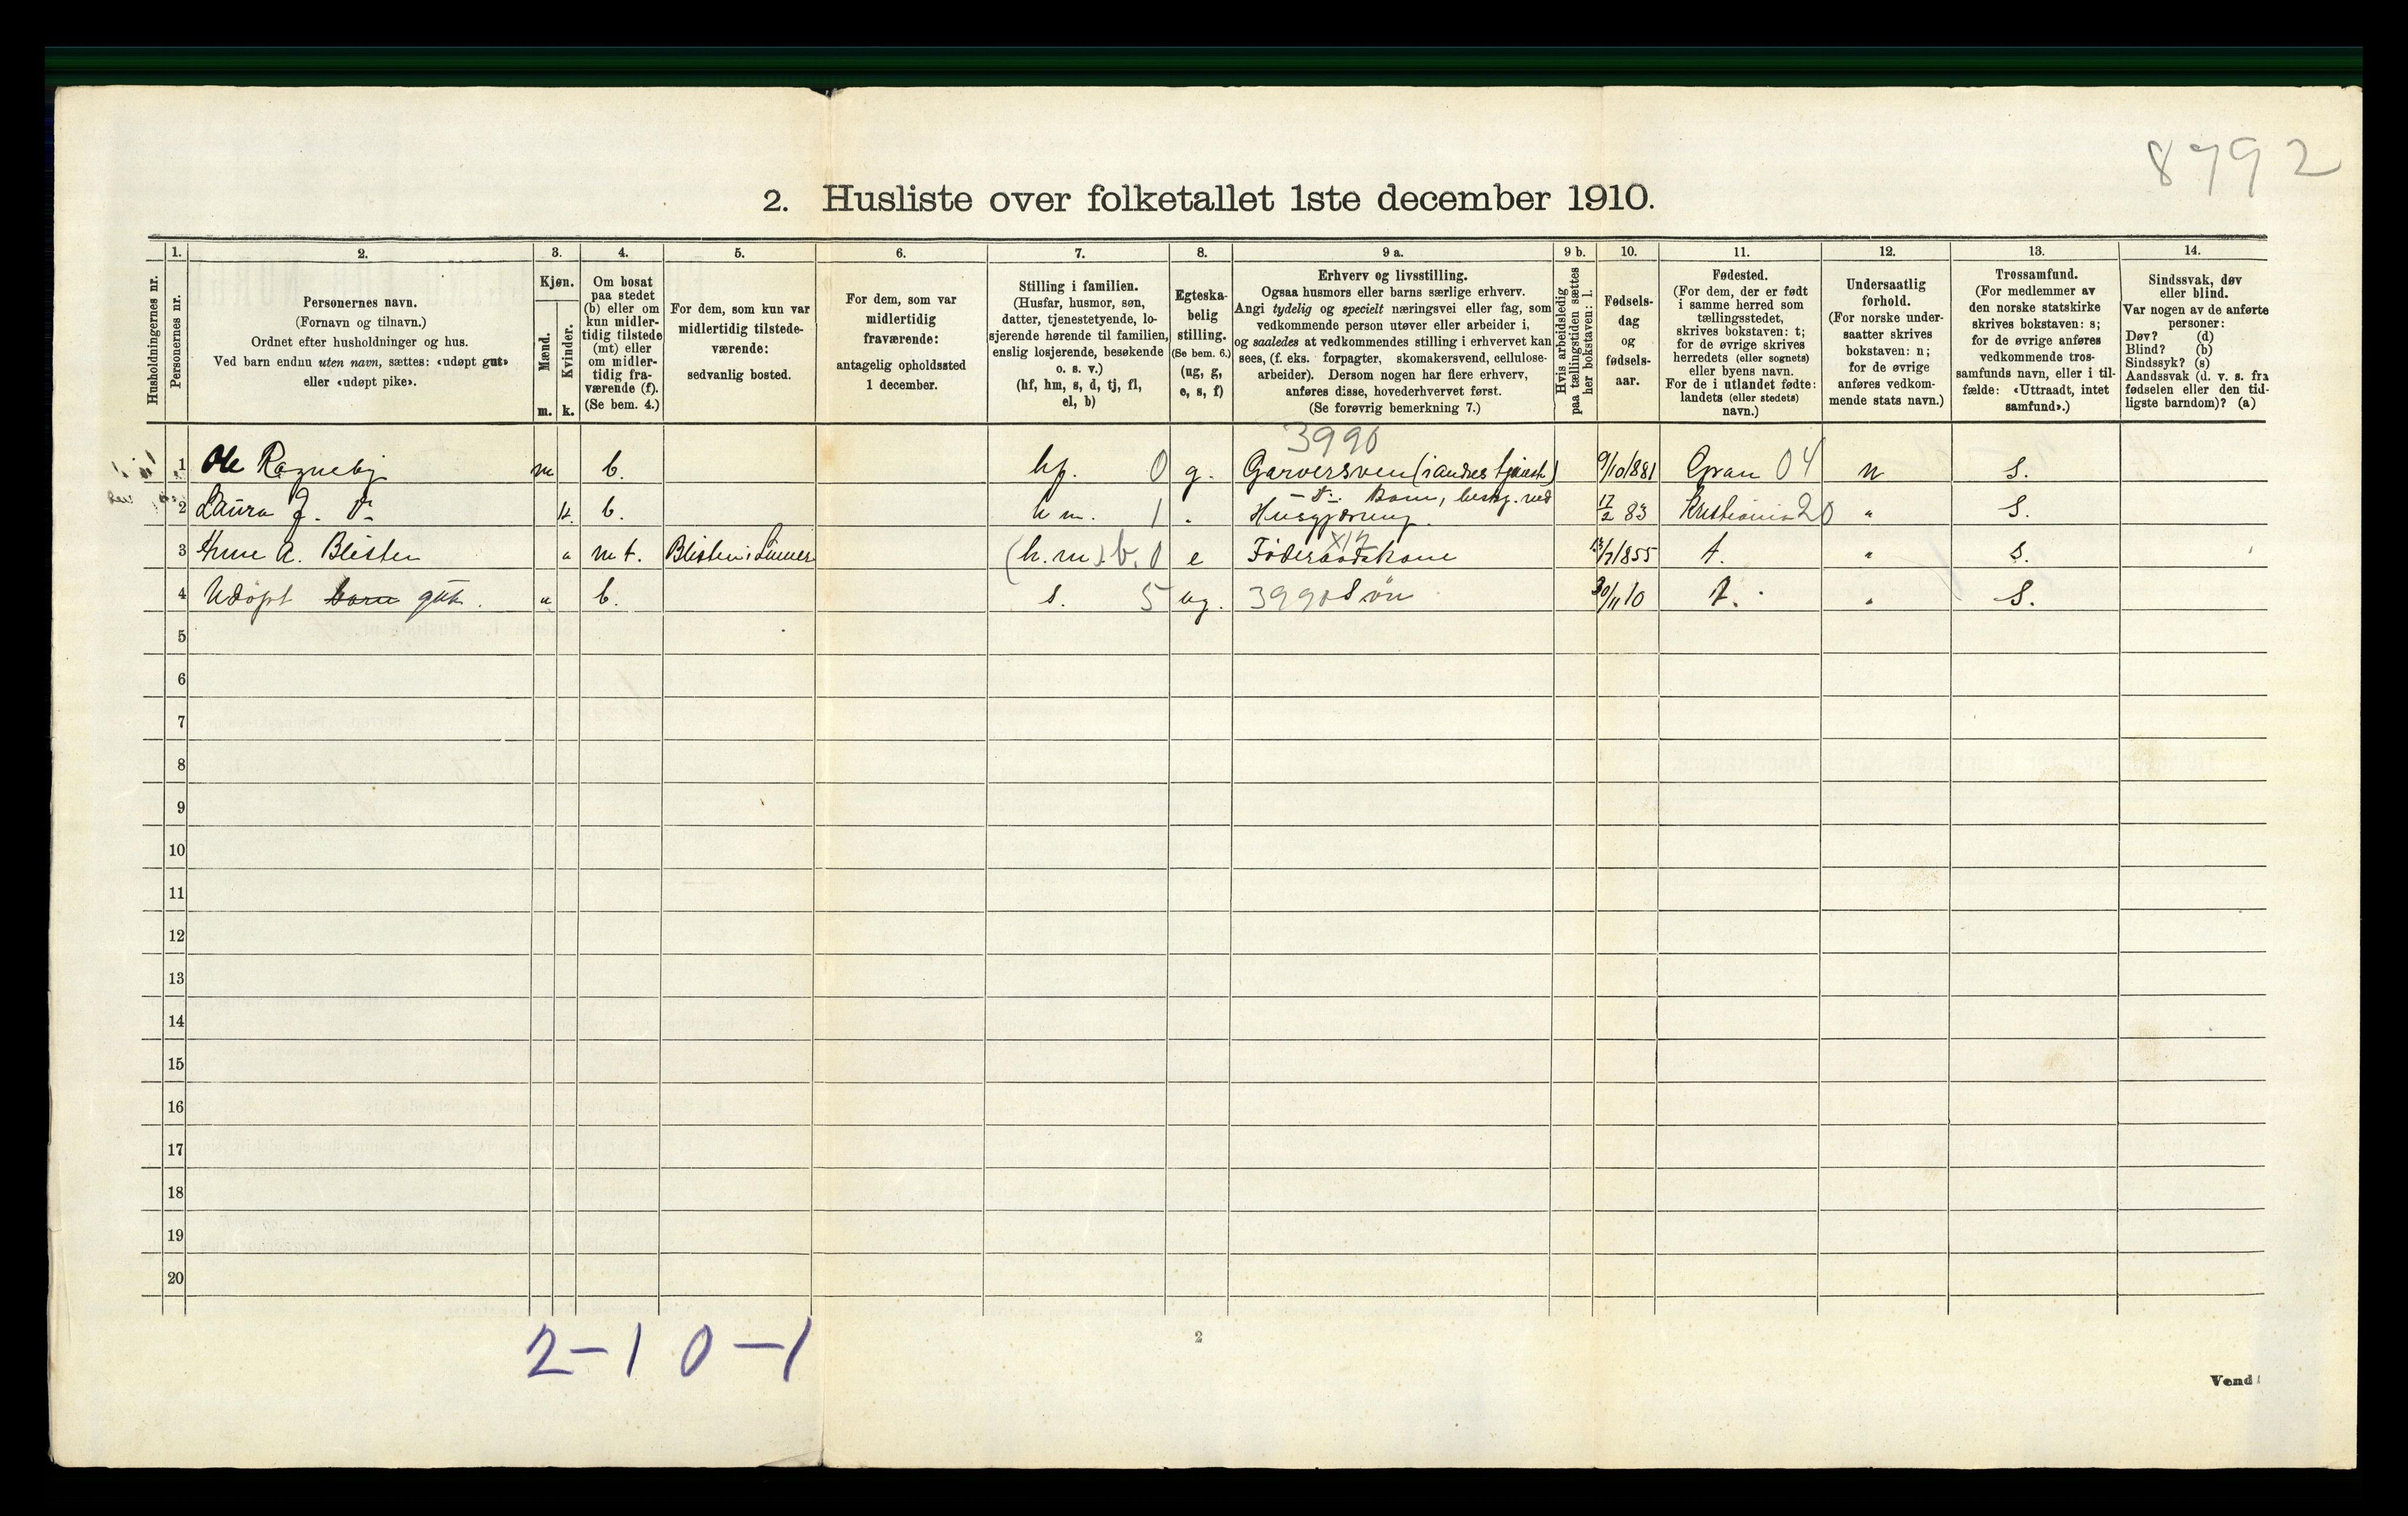 8792
2. Husliste over folketallet 1ste december 1910.
Husholdningernes nr.
1. Personernes nr.
2. Personernes navn. (Fornavn og tilnavn.) Ordnet efter husholdninger og hus. Ved barn endnu uten navn, sættes: «udøpt gut» eller «udøpt pike».
3. Kjøn. Mænd. m. Kvinder. k.
4. Om bosat paa stedet (b) eller om kun midlertidig tilstede (mt) eller om midlertidig fraværende (f). (Se bem. 4.)
5. For dem, som kun var midlertidig tilstedeværende: sedvanlig bosted.
6. For dem, som var midlertidig fraværende: antagelig opholdssted 1 december.
7. Stilling i familien. (Husfar, husmor, søn, datter, tjenestetyende, losjerende hørende til familien, enslig losjerende, besøkende o. s. v.) (hf, hm, s, d, tj, fl, el, b)
8. Egteskabelig stilling. (Se bem. 6.) (ug, g, e, s, f)
9 a. Erhverv og livsstilling. Ogsaa husmors eller barns særlige erhverv. Angi tydelig og specielt næringsvei eller fag, som vedkommende person utøver eller arbeider i, og saaledes at vedkommendes stilling i erhvervet kan sees, (f. eks. forpagter, skomakersvend, cellulosearbeider). Dersom nogen har flere erhverv, anføres disse, hovederhvervet først. (Se forøvrig bemerkning 7.)
9 b. Hvis arbeidsledig paa tællingstiden sættes her bokstaven: l.
10. Fødselsdag og fødselsaar.
11. Fødested. (For dem, der er født i samme herred som tællingsstedet, skrives bokstaven: t; for de øvrige skrives herredets (eller sognets) eller byens navn. For de i utlandet fødte: landets (eller stedets) navn.)
12. Undersaatlig forhold. (For norske undersaatter skrives bokstaven: n; for de øvrige anføres vedkommende stats navn.)
13. Trossamfund. (For medlemmer av den norske statskirke skrives bokstaven: s; for de øvrige anføres vedkommende trossamfunds navn, eller i tilfælde: «Uttraadt, intet samfund».)
14. Sindssvak, døv eller blind. Var nogen av de anførte personer: Døv? (d) Blind? (b) Sindssyk? (s) Aandssvak (d. v. s. fra fødselen eller den tidligste barndom)? (a)
3990
1 Ole Ragneby m b. hf. 0 g. Garversven (i andres tjeneste) 9/10/881 Gran 04 n s.
2 Laura J. do k. b. h m. 1 " - do - kone, beskj. med Husgjerning. 17/2 83 Kristiania 20 " s.
3 Anne A. Blisten " mt. Blisten i Lunner (h.m.) b. 0 e Føderaadskone /7/855 t. " s.
4 Udøpt barn gut. " b. s. 5 ug. 3990 Søn 30/11 10 t. " s.
5
6
7
8
9
10
11
12
13
14
15
16
17
18
19
20
2-1 0-1
2
Vend!